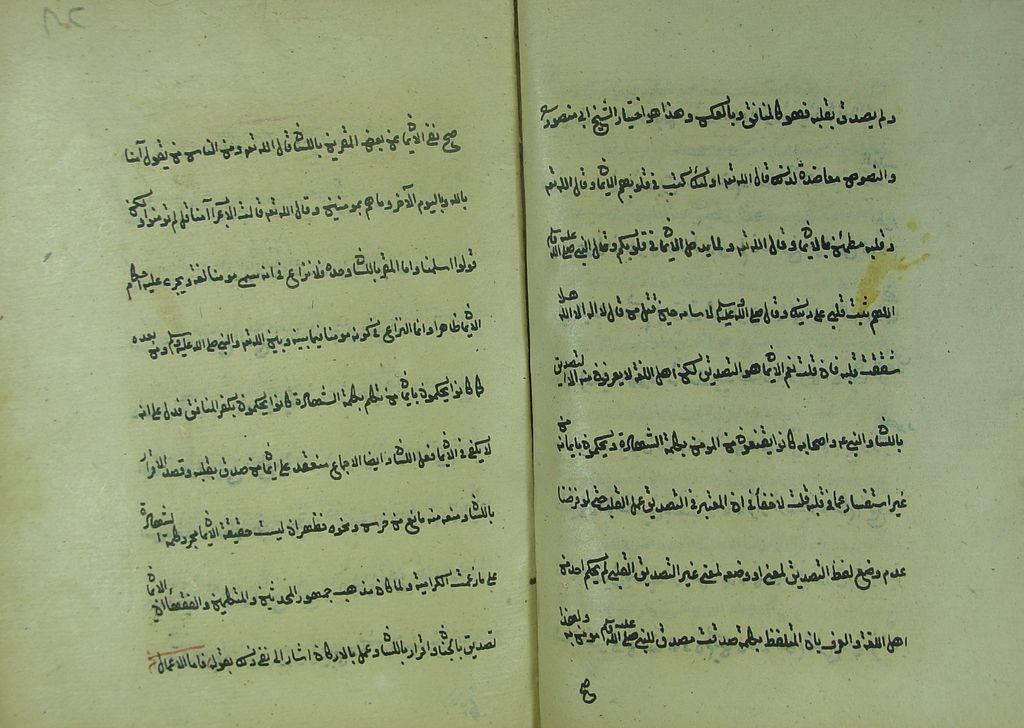 ولم يصدق بقلبه فهو كالمنافق وبالعكس وهذا هو اختيار الشيخ ابي منصور
والنصوص معاضدة لذلك قال الله تعه اولئك كتب في قلوبهم الايمان وقال الله تعه
وقلبه مطمئن بالايمان وقال الله تعه ولما يدخل الايمان في قلوبكم وقال النبي صلى الله عليه وسلم
اللهم ثبت قلبي على دينك وقال صلى الله عليه وسلم لاسامه حين قتل من قال لا اله الا الله هلا
شققت قلبه فان قلت نعم الايمان هو التصديق لكن اهل اللغة لا يعرفون منه الا التصديق
باللسان والنبي عه واصحابه كانوا يقنعون من المومن بكلمة الشهادة ويحكمون بايمانه من
غير استفسار عما في قلبه قلت لا خفأ في ان المعتبر في التصديق عمل القلب حتى لو فرضنا
عدم وضع لفظ التصديق لمعنى او وضعه لمعنى غير التصديق القلبي لم يحكم احد من
اهل اللغة والعرف بان المتلفظ بكلمة صدقت مصدق للنبي صلى الله عليه وسلم مومن به ولهذا
صح
صح نفي الايمان عن بعض المقرين باللسان قال الله تعه ومن الناس من يقول آمنا
بالله وباليوم الآخر وما هم بمومنين وقال الله تعه قالت الاعراب آمنا قل لم تومنوا ولكن
قولوا اسلمنا واما المقر باللسان وحده فلا نزاع في انه يسمى مومنا لغة ويجرى عليه احكام
الايمان ظاهرا وانما النزاع في كونه مومنا فيما بينه وبين الله تعه والنبي صلى الله عليه وسلم ومن بعده
كما كانوا يحكمون بايمان من تكلم بكلمة الشهادة كانوا يحكمون بكفر المنافق فدل على انه
لا يكفي في الايمان فعل اللسان وايضا الاجماع منعقد على ايمان من صدق بقلبه وقصد الاقرار
باللسان ومنعه منه مانع من خرس ونحوه فظهر ان ليست حقيقة الايمان مجرد كلمة الشهادة
على ما زعمت الكرامية ولما كان مذهب جمهور المحدثين والمتكلمين والفقهاء ان الايمان
تصديق بالجنان واقرار باللسان وعمل بالاركان اشار الى نفي ذلك بقوله فاما الاعمال